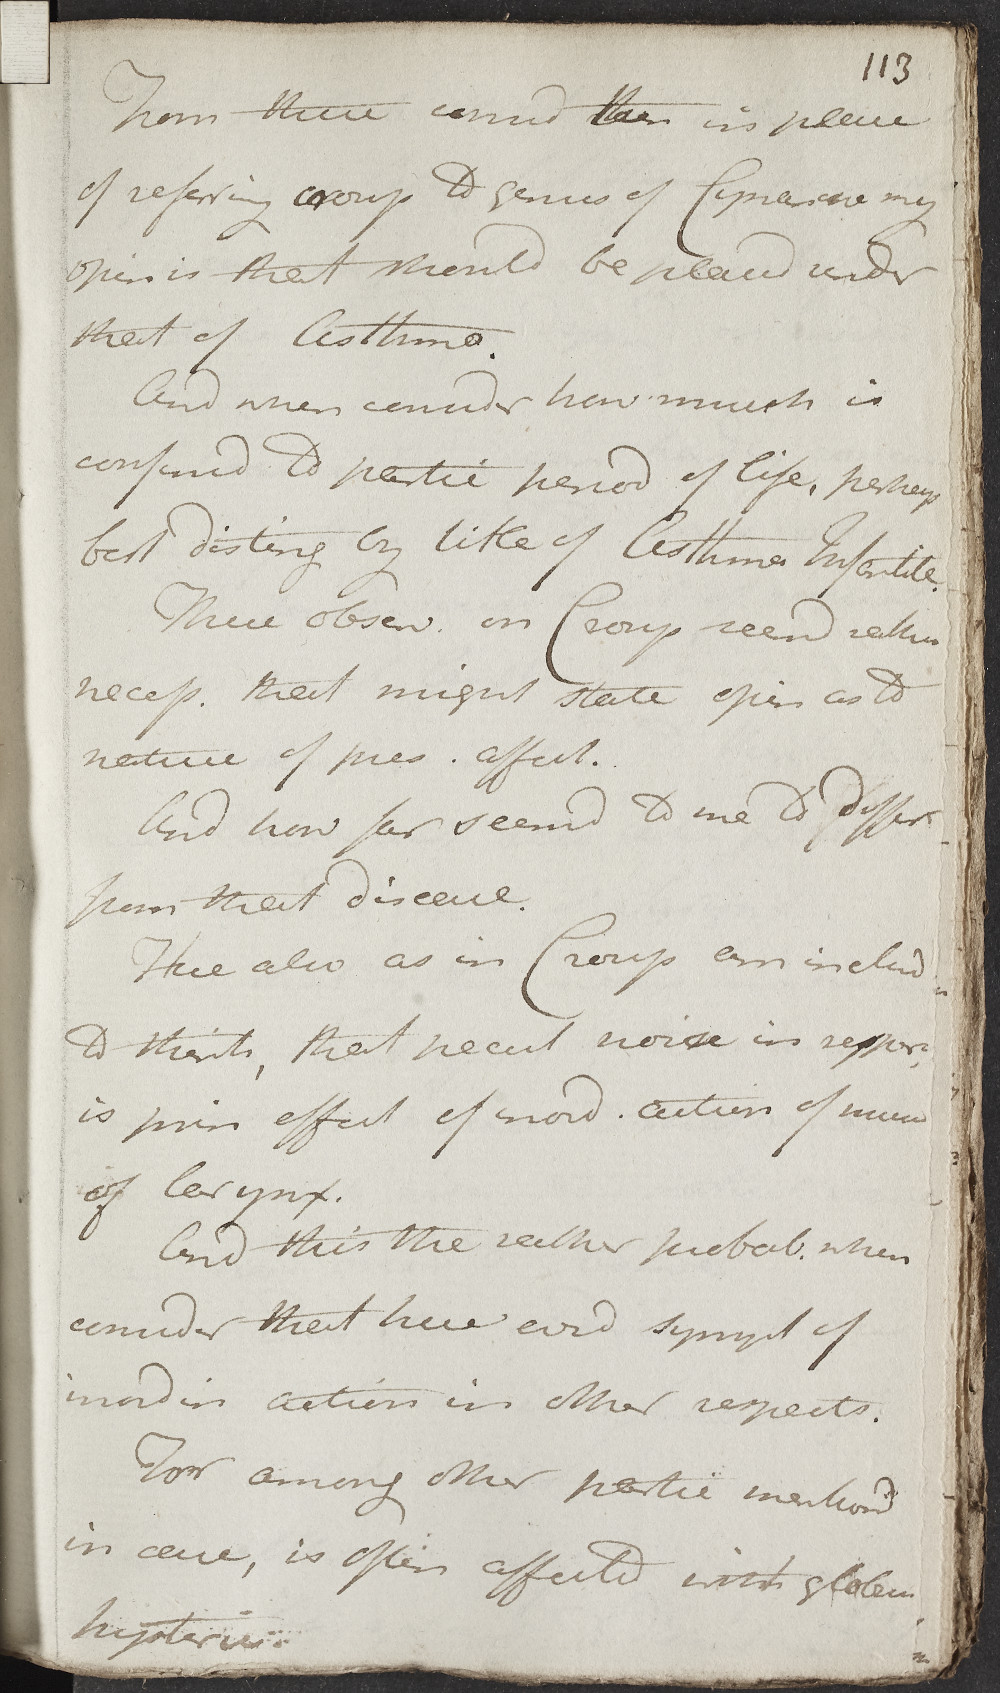 113
From these consid then in place
of referring croup to genus of Cynanche my
opin is that should be placed under
that of Asthma.
And when consider how much is
confined to partic period of life, perhaps
best disting by title of Asthma Infantile.
These observ. on Croup seemd rather
necess. that might state opin as to
nature of pres. affect.
And how far seemd to me to differ
from that disease.
Here also as in Croup am inclind
to think, that pecul noise in respir,
is prin effect of inord. action of musc
of larynx.
And this the rather probab. when
consider that have evid sympt of
inordin action in other respects.
For among other partic mentiond
in case, is often affectd with globus
hysteric..